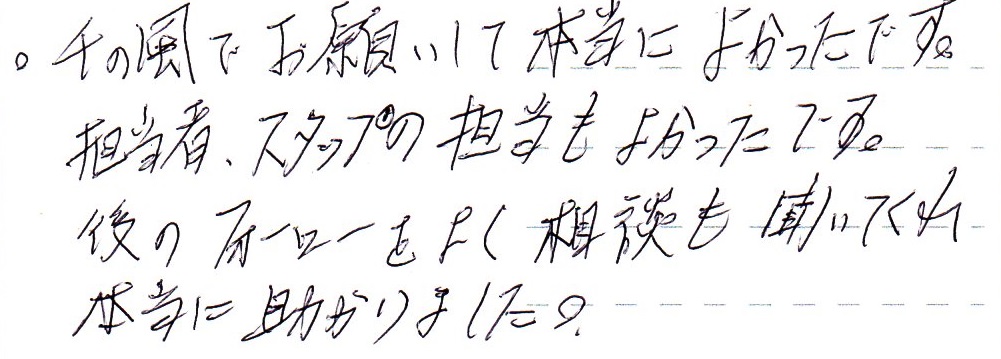 。千の風でお願いして本当によかったです。
担当者、スタップの担当もよかったです。
後のフォローもよく相談も聞いてくれ
本当に助かりました。